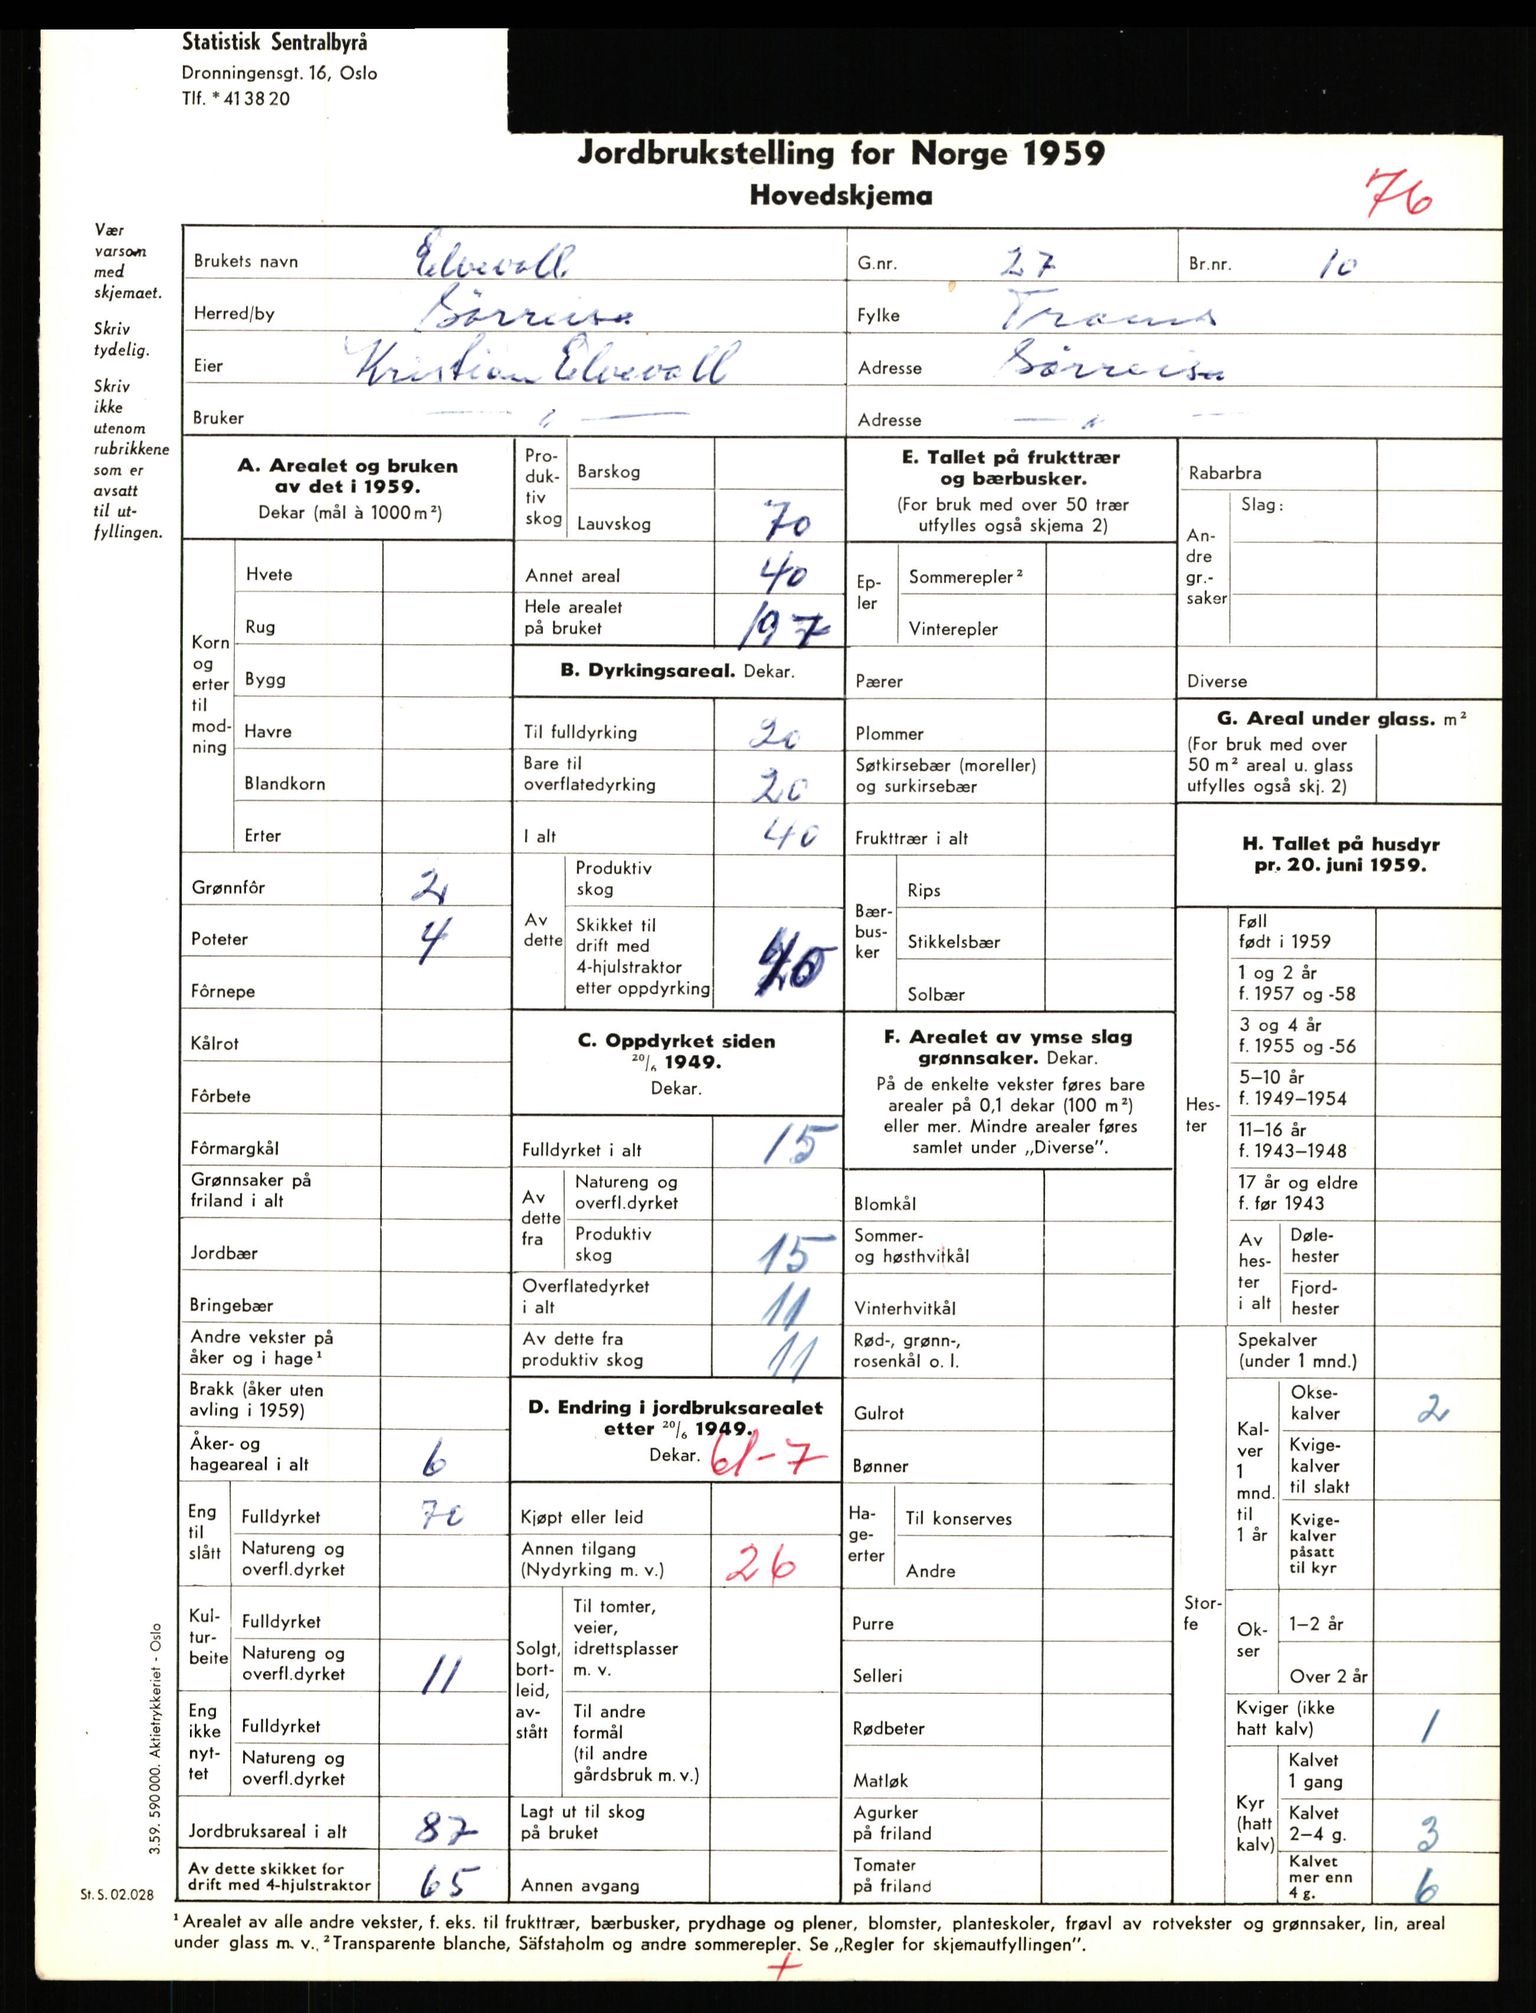 Statistisk Sentralbyrå
Dronningensgt. 16, Oslo
Tlf. * 41 38 20
Jordbrukstelling for Norge 1959
Hovedskjema
76
Vær
varsom
med
skjemaet.
Skriv
tydelig.
Skriv
ikke
utenom
rubrikkene
som er
avsatt
til ut-
fyllingen.
Brukets navn Elvevoll G.nr. 27 Br.nr. 10
Herred/by Sörreisa Fylke Troms
Eier Kristian Elvevoll Adresse Sörreisa
Bruker — " — Adresse — " —
A. Arealet og bruken
av det i 1959.
Dekar (mål à 1000 m²)
Korn
og
erter
til
mod-
ning
Hvete
Rug
Bygg
Havre
Blandkorn
Erter
Grønnfôr 2
Poteter 4
Fôrnepe
Kålrot
Fôrbete
Fôrmargkål
Grønnsaker på
friland i alt
Jordbær
Bringebær
Andre vekster på
åker og i hage¹
Brakk (åker uten
avling i 1959)
Åker- og
hageareal i alt 6
Eng
til
slått
Fulldyrket 70
Natureng og
overfl.dyrket
Kul-
tur-
beite
Fulldyrket
Natureng og
overfl.dyrket 11
Eng
ikke
nyt-
tet
Fulldyrket
Natureng og
overfl.dyrket
Jordbruksareal i alt 87
Av dette skikket for
drift med 4-hjulstraktor 65
Pro-
duk-
tiv
skog
Barskog
Lauvskog 70
Annet areal 40
Hele arealet
på bruket 197
B. Dyrkingsareal. Dekar.
Til fulldyrking 20
Bare til
overflatedyrking 20
I alt 40
Av
dette
Produktiv
skog
Skikket til
drift med
4-hjulstraktor
etter oppdyrking
C. Oppdyrket siden
20/6 1949.
Dekar.
Fulldyrket i alt 15
Av
dette
fra
Natureng og
overfl.dyrket
Produktiv
skog 15
Overflatedyrket
i alt 11
Av dette fra
produktiv skog 11
D. Endring i jordbruksarealet
etter 20/6 1949.
Dekar. 61-7
Kjøpt eller leid
Annen tilgang
(Nydyrking m. v.) 26
Solgt,
bort-
leid,
av-
stått
Til tomter,
veier,
idrettsplasser
m. v.
Til andre
formål
(til andre
gårdsbruk m. v.)
Lagt ut til skog
på bruket
Annen avgang
E. Tallet på frukttrær
og bærbusker.
(For bruk med over 50 trær
utfylles også skjema 2)
Ep-
ler
Sommerepler²
Vinterepler
Pærer
Plommer
Søtkirsebær (moreller)
og surkirsebær
Frukttrær i alt
Bær-
bus-
ker
Rips
Stikkelsbær
Solbær
F. Arealet av ymse slag
grønnsaker. Dekar.
På de enkelte vekster føres bare
arealer på 0,1 dekar (100 m²)
eller mer. Mindre arealer føres
samlet under „Diverse”.
Blomkål
Sommer-
og høsthvitkål
Vinterhvitkål
Rød-, grønn-,
rosenkål o. l.
Gulrot
Bønner
Ha-
ge-
erter
Til konserves
Andre
Purre
Selleri
Rødbeter
Matløk
Agurker
på friland
Tomater
på friland
Rabarbra
An-
dre
gr.-
saker
Slag:
Diverse
G. Areal under glass. m²
(For bruk med over
50 m² areal u. glass
utfylles også skj. 2)
H. Tallet på husdyr
pr. 20. juni 1959.
Hes-
ter
Føll
født i 1959
1 og 2 år
f. 1957 og -58
3 og 4 år
f. 1955 og -56
5–10 år
f. 1949–1954
11–16 år
f. 1943–1948
17 år og eldre
f. før 1943
Av
hes-
ter
i alt
Døle-
hester
Fjord-
hester
Stor-
fe
Spekalver
(under 1 mnd.)
Kal-
ver
1
mnd.
til
1 år
Okse-
kalver 2
Kvige-
kalver
til slakt
Kvige-
kalver
påsatt
til kyr
Ok-
ser
1–2 år
Over 2 år
Kviger (ikke
hatt kalv) 1
Kyr
(hatt
kalv)
Kalvet
1 gang
Kalvet
2–4 g. 3
Kalvet
mer enn
4 g. 6
3.59. 590 000. Aktietrykkeriet - Oslo
St. S. 02.028
¹ Arealet av alle andre vekster, f. eks. til frukttrær, bærbusker, prydhage og plener, blomster, planteskoler, frøavl av rotvekster og grønnsaker, lin, areal
under glass m. v. ² Transparente blanche, Säfstaholm og andre sommerepler. Se „Regler for skjemautfyllingen”.
+